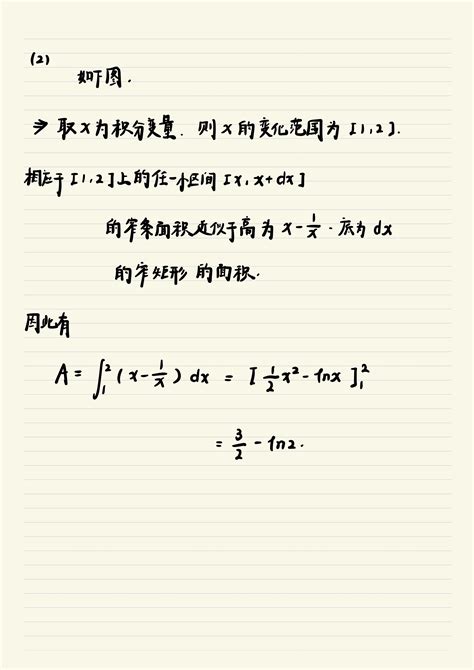 (2)
如下图.
⇒ 取x为积分变量. 则x的变化范围为[1,2].
相应于[1,2]上的任一小区间[x,x+dx]
的窄条面积近似于高为x-1/x.底为dx
的窄矩形的面积.
因此有
A=∫₁²(x-1/x)dx = [1/2x²-lnx]₁²
= 3/2 - ln2.